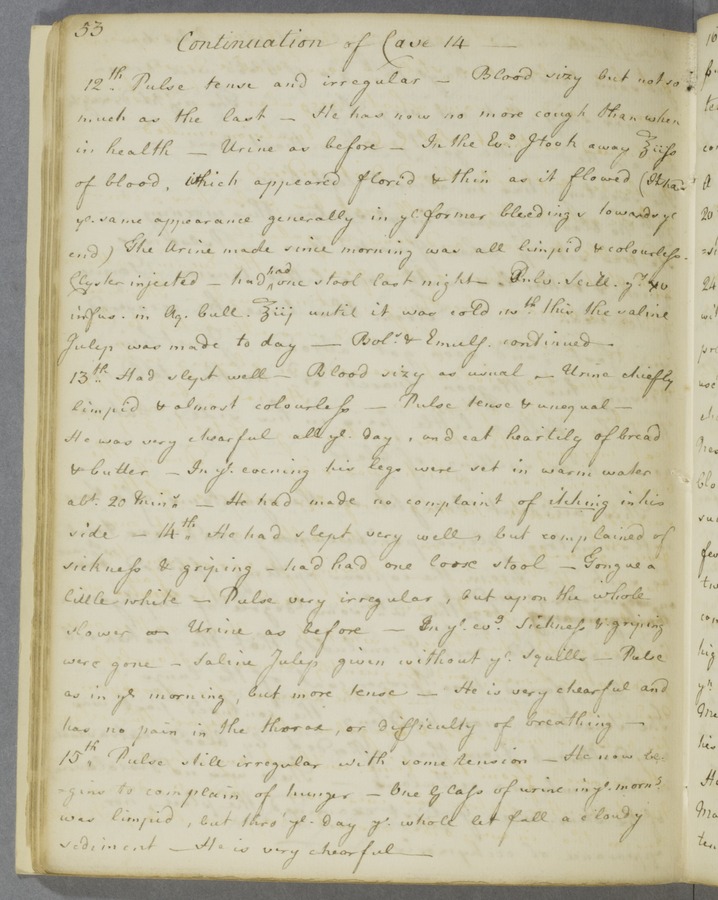 53
Continuation of Case 14 —
12th. Pulse tense and irregular — Blood sizy but not so
much as the last — He has now no more cough than when
in health — Urine as before — In the Evg. I took away ℥iiſs
of blood, which appeared florid & thin as it flowed (It had
ye. same appearance generally in ye. former bleedings towards ye
end) The Urine made since morning was all limpid & colourless.
Clyster injected — had had one stool last night — Pulv. Scill. gr. xv
infus. in Aq. bull. ℥iij until it was cold wth. this the saline
Julep was made to day — Bols. & Emuls. continued —
13th. Had slept well — Blood sizy as usual — Urine chiefly
limpid & almost colourleſs — Pulse tense & unequal —
He was very chearful all ye. day, and eat heartily of bread
& butter — In ye. evening his legs were set in warm water
abt. 20 Mins. — He had made no complaint of itching in his
side — 14th. He had slept very well, but complained of
sickneſs & griping — had had one loose stool — Tongue a
little white — Pulse very irregular, but upon the whole
slower — Urine as before — In ye. evg. Sickneſs & griping
were gone — Saline Julep given without ye. Squills — Pulse
as in ye. morning, but more tense — He is very chearful and
has no pain in the thorax, or difficulty of breathing —
15th. Pulse still irregular with some tension — He now be-
-gins to complain of hunger — One Glaſs of urine in ye. morng.
was limpid, but thro' ye. day ye. whole let fall a cloudy
sediment — He is very chearful —